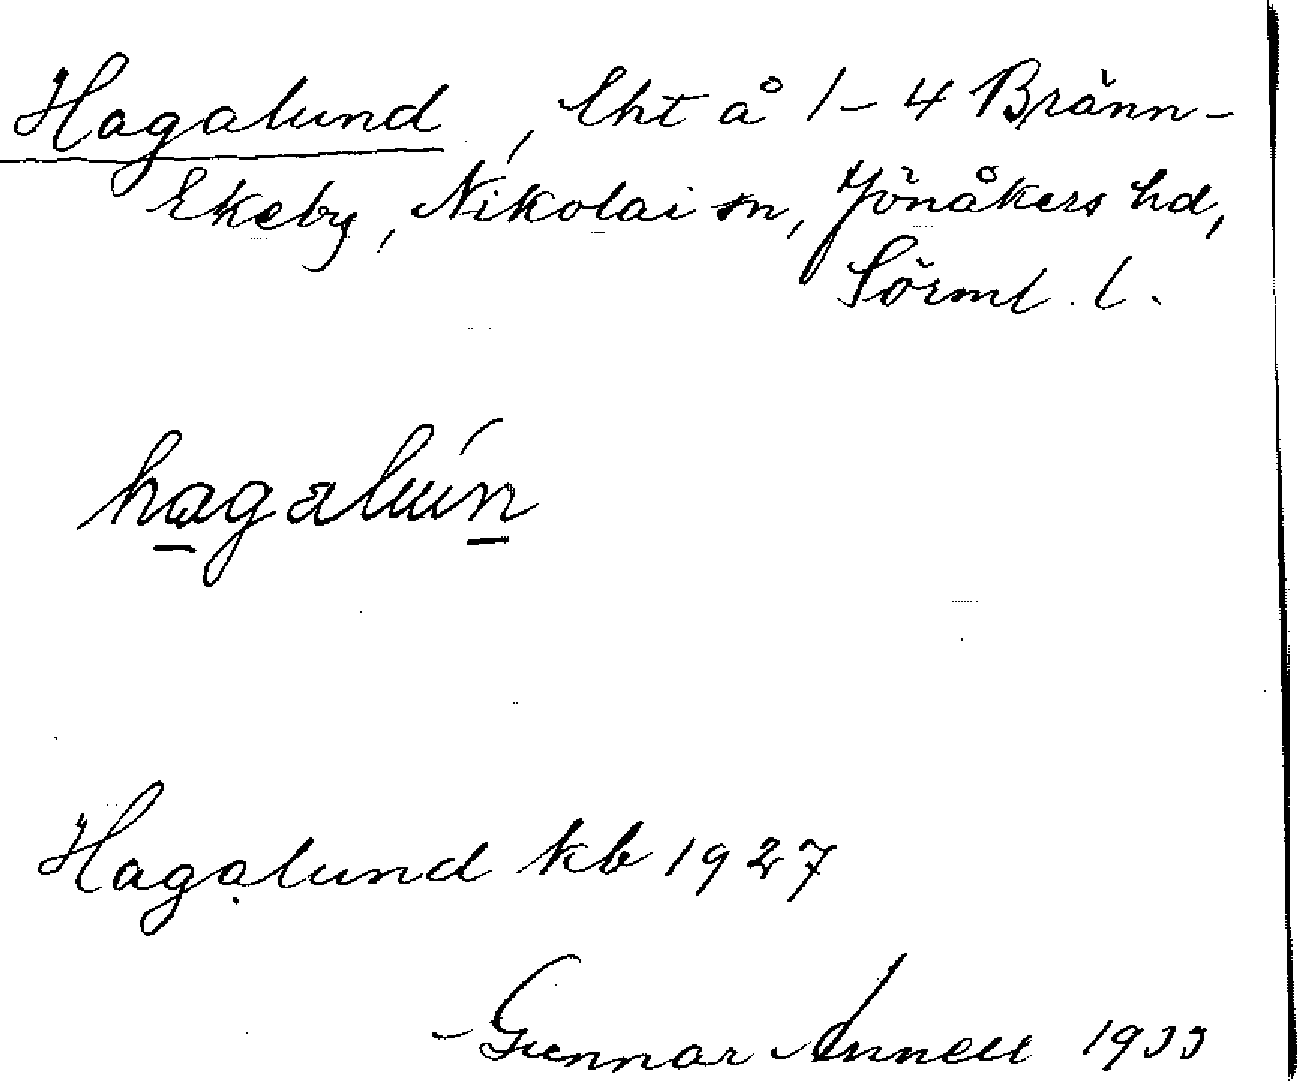 Hagalund, lht å 1-4 Bränn-
Ekeby, Nikolai sn, Jönåkers hd,
Sörml. l.
hagalún
Hagalund kb 1927
Gunnar Annell 1933